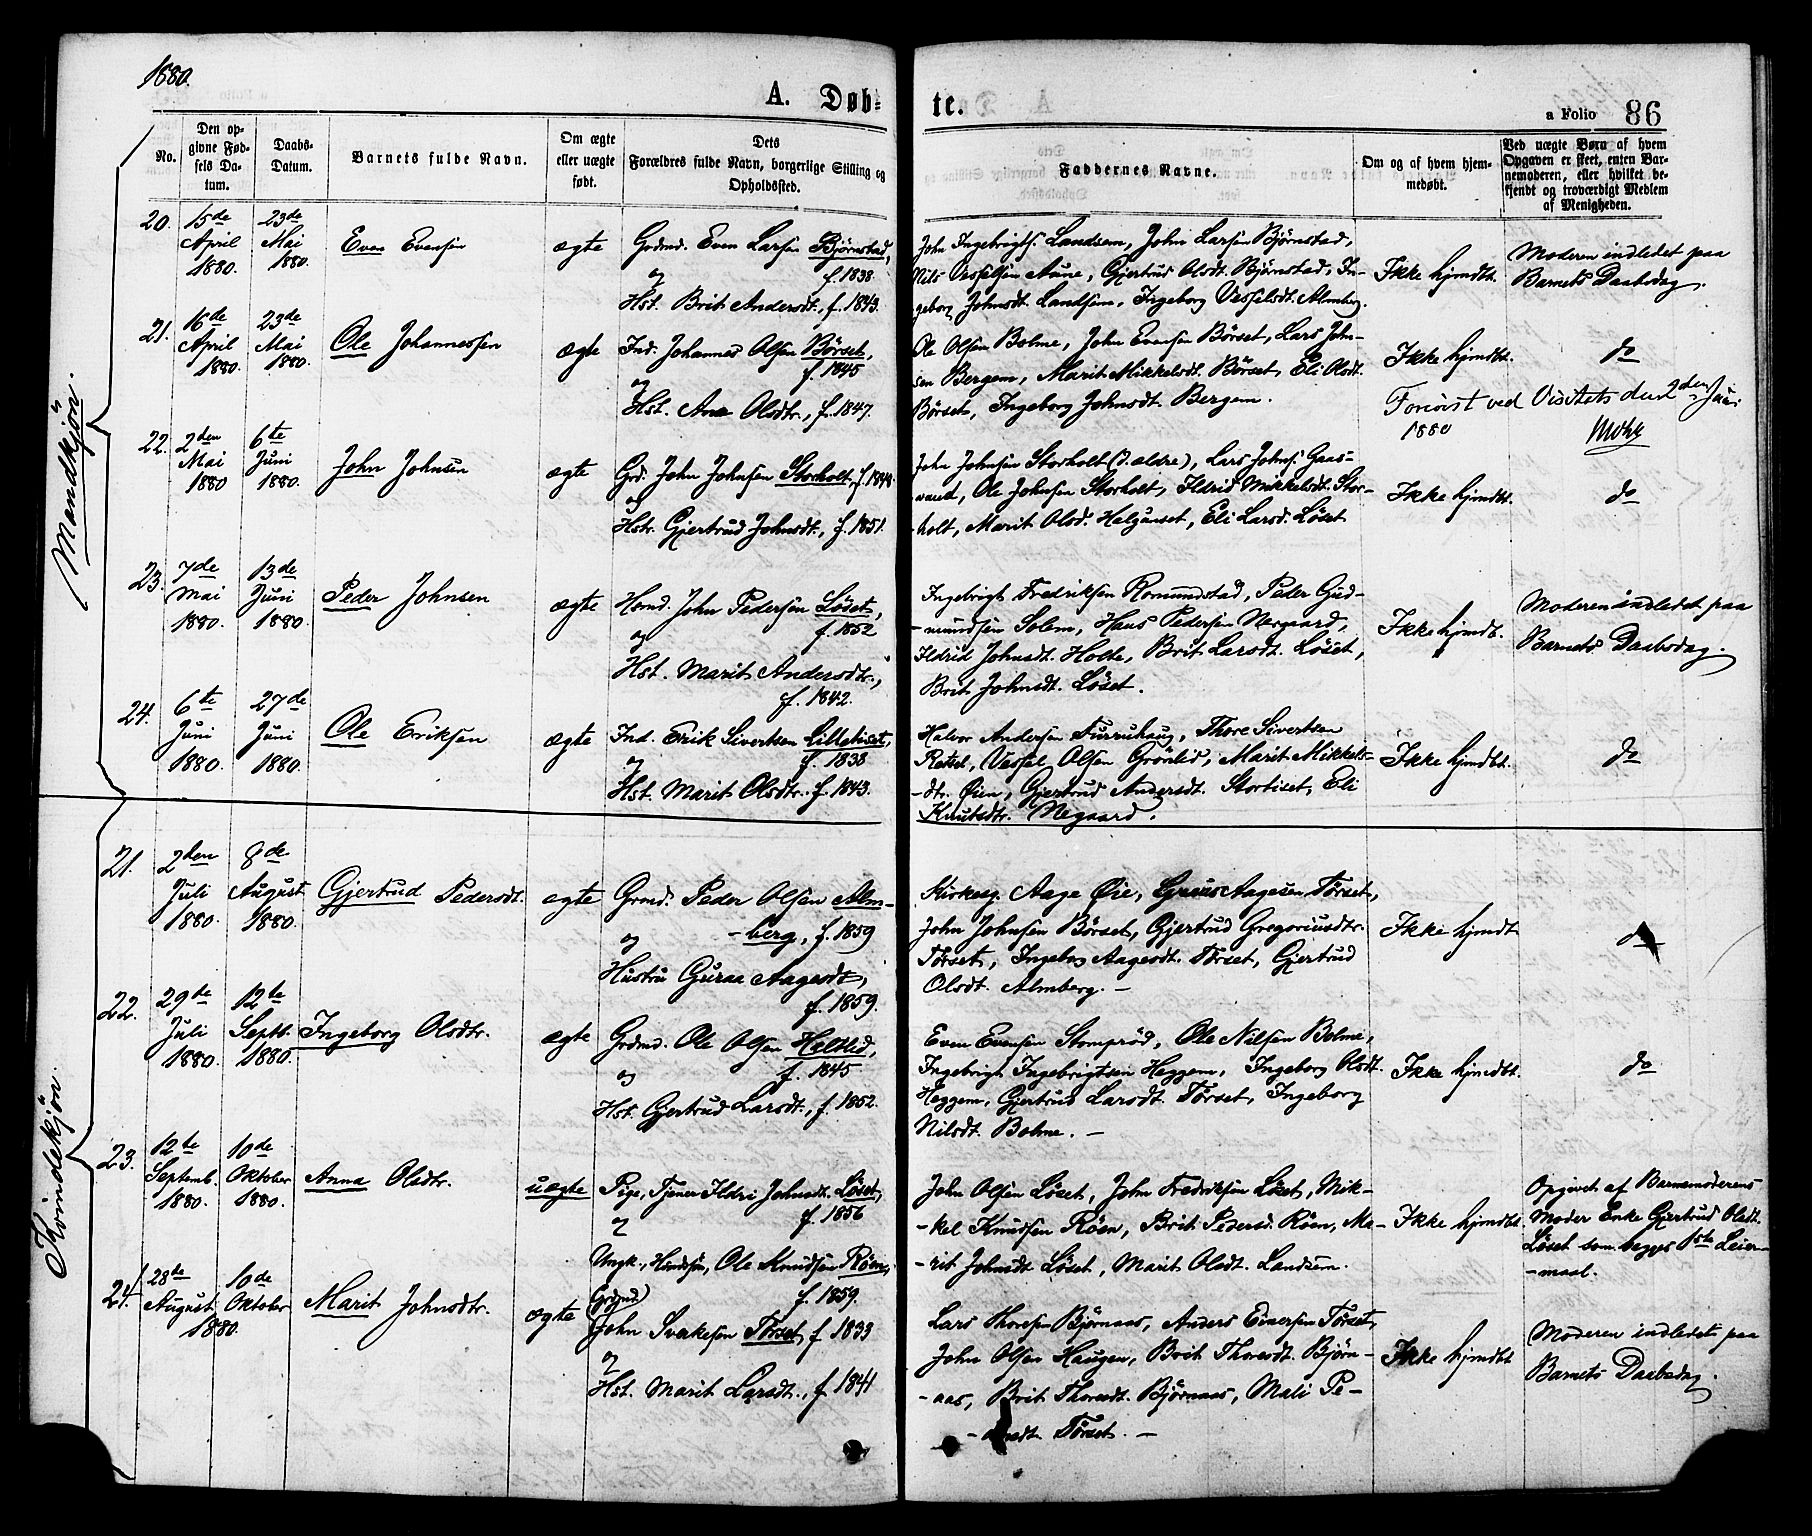 1880.
A. Døbte.
a Folio 86
No.
Den opgivne Fødsels Datum.
Daabs-Datum.
Barnets fulde Navn.
Om ægte eller uægte født.
Dets Forældres fulde Navn, borgerlige Stilling og Opholdssted.
Faddernes Navne.
Om og af hvem hjemmedøbt.
Ved uægte Børn af hvem Opgaven er skeet, enten Barnemoderen, eller hvilket bekjendt og troværdigt Medlem af Menigheden.
Mandkjön.
20.
15de April 1880.
23de Mai 1880.
Even Evensen
ægte
Grdmd. Even Larsen Bjørnstad, f. 1838.
og
Hst. Brit Andersdt., f. 1843.
John Ingebrigts. Landsem, John Larsen Bjørnstad,
Nils Vesselsen Aune, Gjertrud Olsdt. Bjørnstad, In-
geborg Johnsdt. Landsem, Ingeborg Vesselsdt. Almberg.
Ikke hjmdbt.
Moderen indledet paa
Barnets Daabsdag.
21.
16de April 1880.
23de Mai 1880.
Ole Johannessen
ægte
Ind. Johannes Olsen Börset,
f. 1845
og
Hst. Ane Olsdtr., f. 1847.
Ole Olsen Bolme, John Evensen Börset, Lars John-
sen Bergem, Marit Mikkelsdt. Börset, Eli Olsdt.
Börset, Ingeborg Johnsdt. Bergem.
Ikke hjmdbt.
do
Foreviist ved Visitats den 2den Juni
1880
22.
2den Mai 1880
6te Juni 1880.
John Johnsen
ægte
Grd. John Johnsen Storholt, f. 1848.
og
Hstr. Gjertrud Johnsdt., f. 1851.
John Johnsen Storholt (d. ældre), Lars Johns. Gaas-
vand, Ole Johnsen Storholt, Ildrid Mikkelsdt. Stor-
-holt, Marit Olsd. Halgunset, Eli Larsd. Löset
Ikke hjmdbt.
do
23.
7de Mai 1880.
13de Juni 1880.
Peder Johnsen
ægte
Hsmd. John Pedersen Löset,
f. 1852
og
Hst. Marit Andersdtr.,
f. 1842.
Ingebrigt Fredriksen Romundstad, Peder Gud-
-mundsen Solem, Hans Pedersen Nergaard,
Ildrid Johnsdt. Holte, Brit Larsdt. Löset,
Brit Johnsdt. Löset.
Ikke hjmdt.
Moderen indledet paa
Barnets Daabsdag.
24.
6te Juni 1880.
27de Juni 1880.
Ole Eriksen
ægte
Ind. Erik Sivertsen Lilletiset,
f. 1838
og
Hst. Marit Olsdtr. f. 1843.
Halvor Andersen Furruhaug, Thore Sivertsen
Vessel Olsen Grönlid, Marit Mikkels-
-dtr. Øien, Gjertrud Andersdt. Stortiset, Eli
Knutsdtr. Negaard.
Ikke hjmdbt.
do
Kvindekjön.
21.
2den Juli 1880.
8de August 1880.
Gjertrud Pedersdt.
ægte
Grmd. Peder Olsen Alm-
-berg, f. 1859
og
Hustru Guraa Aagesdt,
f. 1859.
Kirkesg. Aage Øie, Aagesen Törset,
John Johnsen Börset, Gjertrud Gregoriusdtr.
Törset, Ingeborg Aagesdt. Törset, Gjertrud
Olsdt. Almberg. -
Ikke hjmdt
do
22.
29de Juli 1880.
12te Septb. 1880.
Ingeborg Olsdtr.
ægte
Grdmd. Ole Olsen Heltlid,
f. 1845
og
Hst. Gjertrud Larsdt., f. 1852.
Even Evensen Stomprød, Ole Nilsen Bolme,
Ingebrigt Ingebrigtsen Heggem, Ingeborg Olsdt.
Heggem, Gjertrud Larsdt. Törset, Ingeborg
Nilsdt. Bolme. -
Ikke hjmdbt.
do
23.
12te Septemb. 1880.
10de Oktober 1880.
Anna Olsdtr.
uægte
Pige, Tjener Ildri Johnsdt. Löset,
f. 1856
og
Ungk., Ole Knudsen Röen,
f. 1859.
John Olsen Löset, John Fredriksen Löset, Mik-
-kel Knudsen Röen, Brit Pedersd. Röen, Ma-
-rit Johnsdt Löset, Marit Olsdt. Landsem.
Ikke hjmdbt.
Opgivet af Barnemoderens
Moder Enke Gjertrud Olsdt.
Löset som begges 1ste Leier-
-maal.
24.
28de August 1880.
10de Oktober
Marit Johnsdtr.
ægte
Grdmd.
John Sverkesen Törset, f. 1833
og
Hst. Marit Larsdt., f. 1841
Lars Thoresen Bjørnaas, Anders Einersen Törset,
John Olsen Haugen, Brit Thoresdt. Björn-
-aas, Brit Thoresdt. Bjørnaas, Mali Pe-
Törset. -
Ikke hjmdbt
Moderen indledet paa
Barnets Daabsdag.